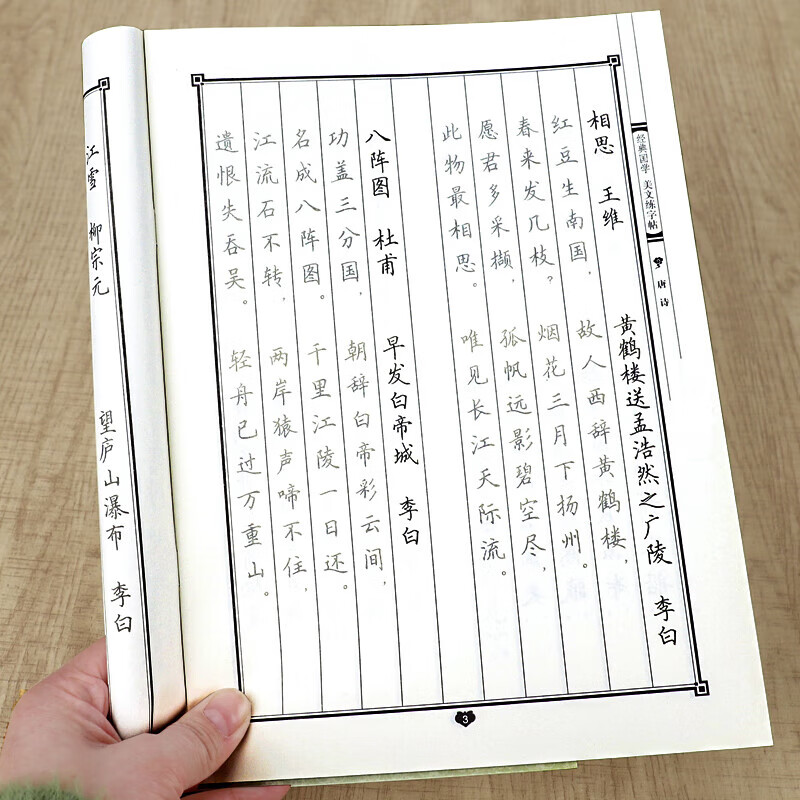 经典国学 美文练字帖
唐诗
相思 王维
红豆生南国，
春来发几枝？
愿君多采撷，
此物最相思。
黄鹤楼送孟浩然之广陵 李白
故人西辞黄鹤楼，
烟花三月下扬州。
孤帆远影碧空尽，
唯见长江天际流。
八阵图 杜甫
功盖三分国，
名成八阵图。
江流石不转，
遗恨失吞吴。
早发白帝城 李白
朝辞白帝彩云间，
千里江陵一日还。
两岸猿声啼不住，
轻舟已过万重山。
3
江雪 柳宗元
望庐山瀑布 李白